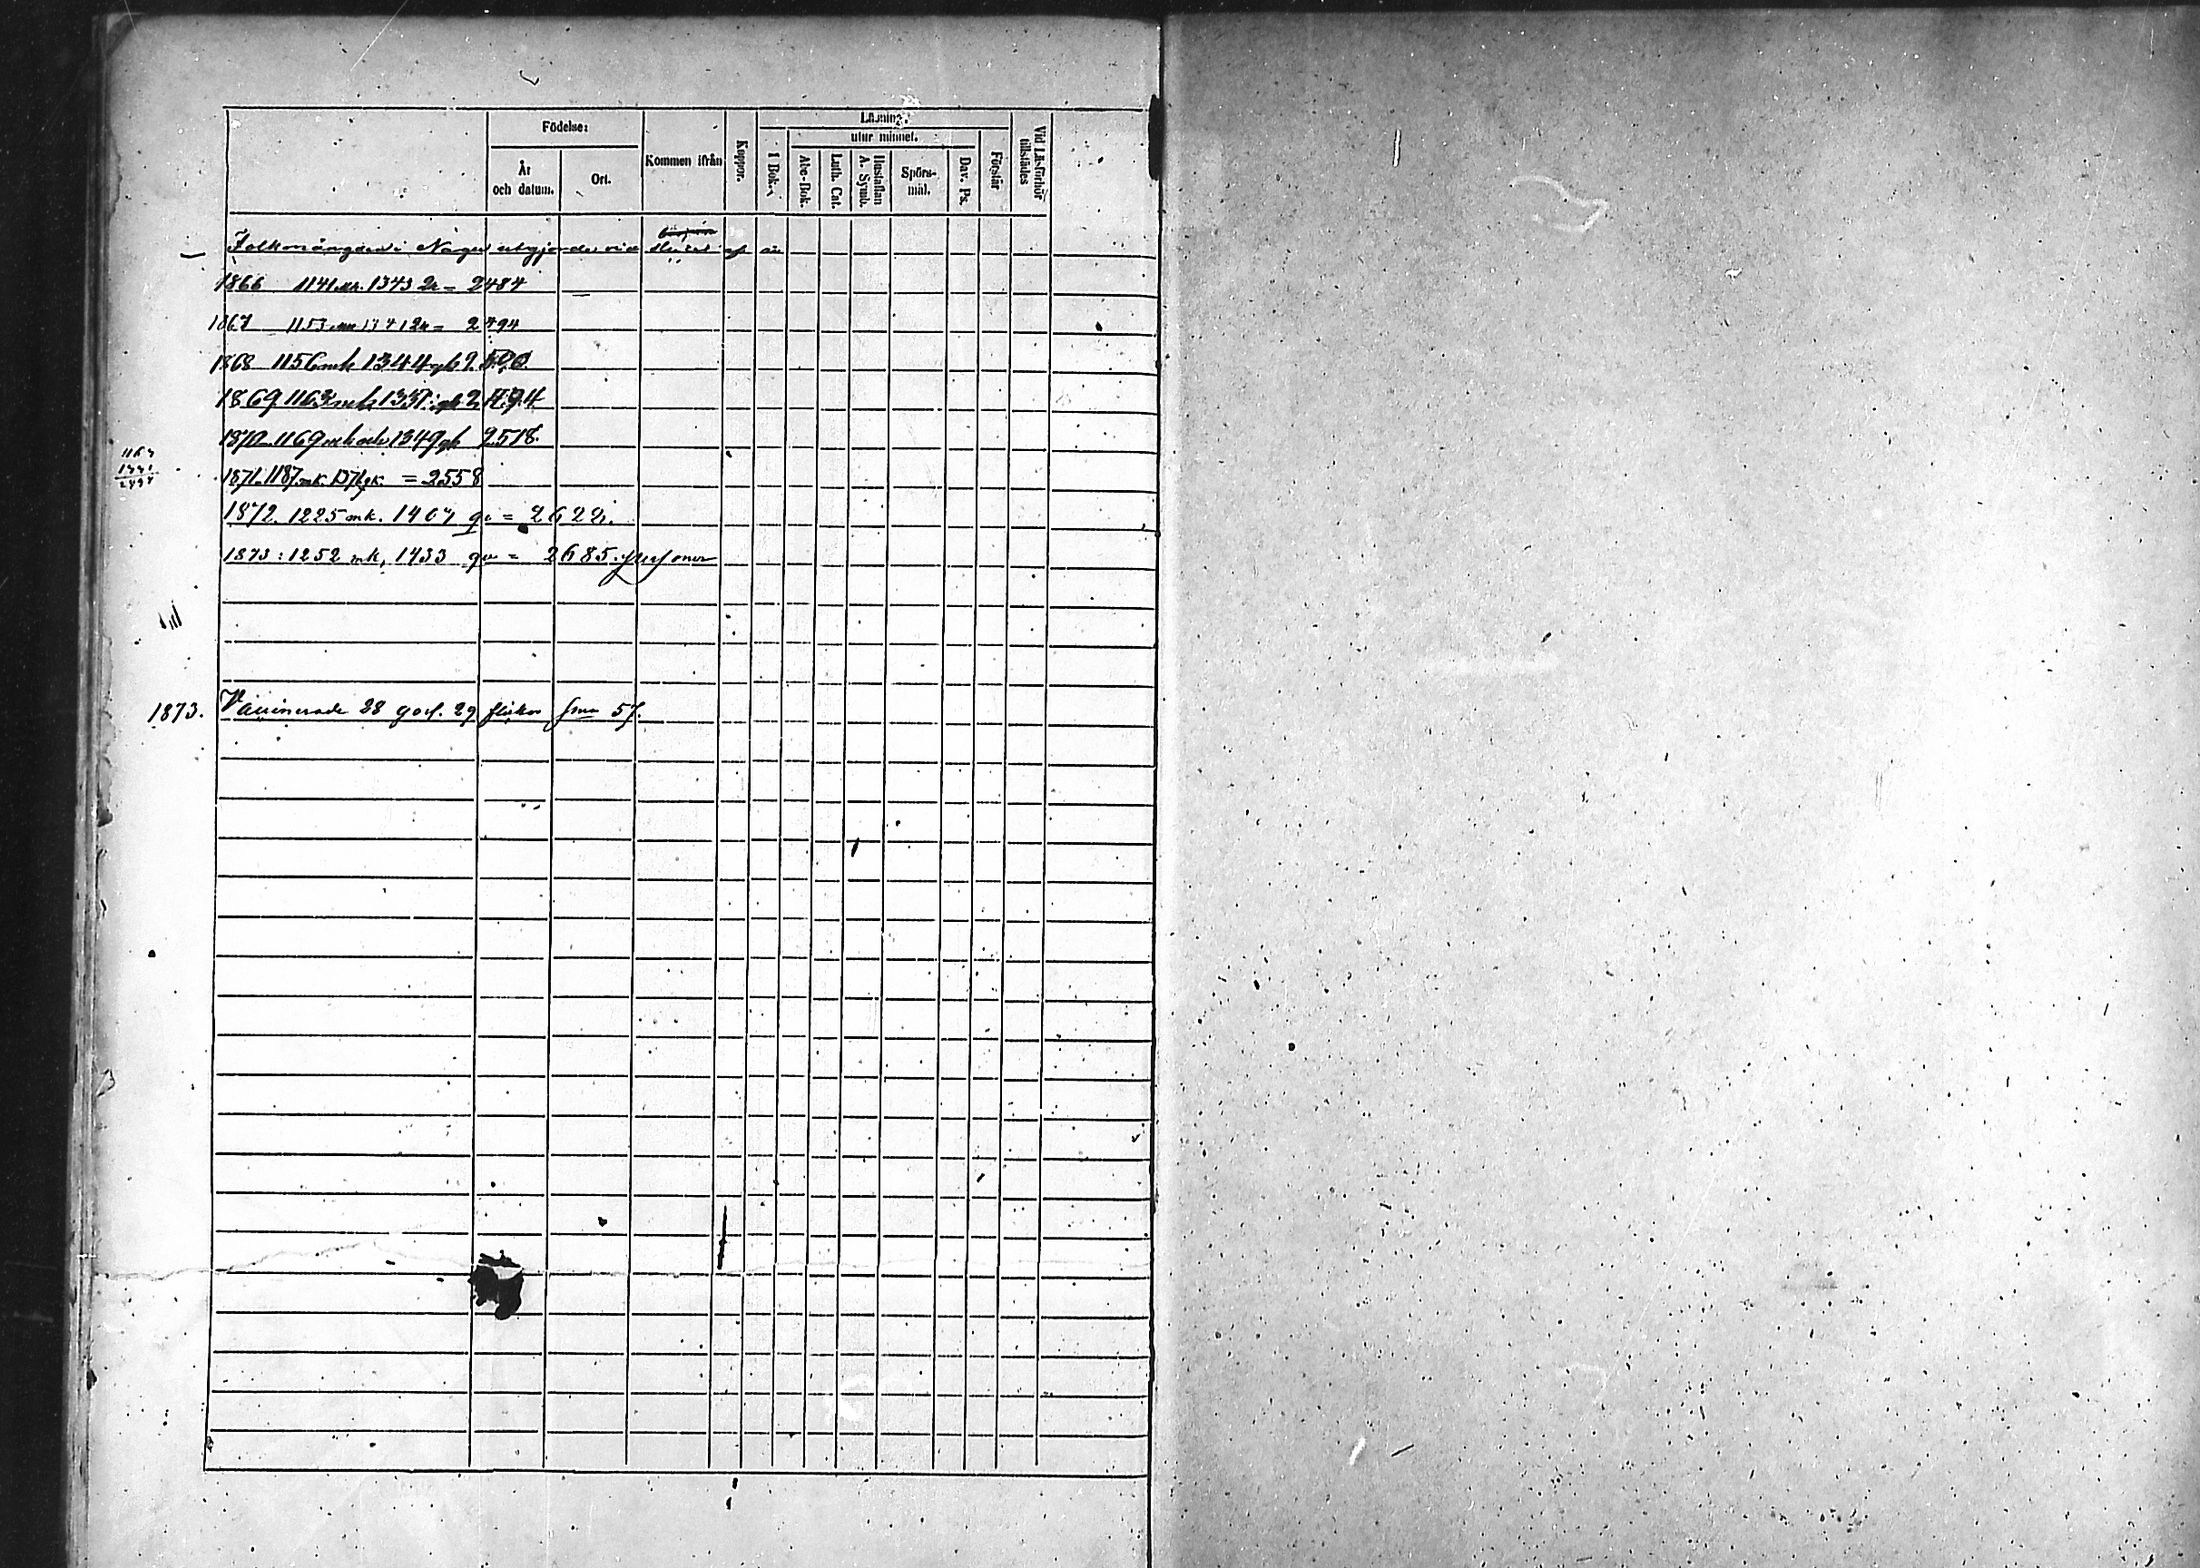 Födelse:
År och datum.
Ort.
Kommen ifrån
Koppor.
Läsning.
utur minnet.
I Bok.
Abc-Bok.
Luth. Cat.
Hustaflan A. Symb.
Spörs-mål.
Dav. Ps.
Förstår
Vid Läsförhör tillstädes
Folkmängden i Nagu utgjorde vid slutet af år
1866 1141 mk. 1343 2484
1867 1153 mk 1341 2494
1868 1156 mk 1344 qk 2500
1869 1163 mk 1331 qk 2494
1870 1169 mk och 1349 qk 2518.
1163
1331
2494
1871. 1187 mk. 1371 qk. = 2558
1872. 1225 mk. 1407 qv = 262
1873: 1252 mk, 1433 qv = 2685. personer
1873. Vaccinerade 28 goss. 29 flickor s:ma 57.